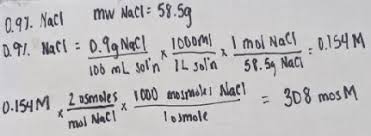 0.9% NaCl  mw NaCl = 58.5g
0.9% NaCl = 0.9g NaCl / 100 mL sol'n × 1000ml / 1L sol'n × 1 mol NaCl / 58.5g NaCl = 0.154M
0.154M × 2 osmoles / mol NaCl × 1000 mosmoles NaCl / 1 osmole = 308 mosM